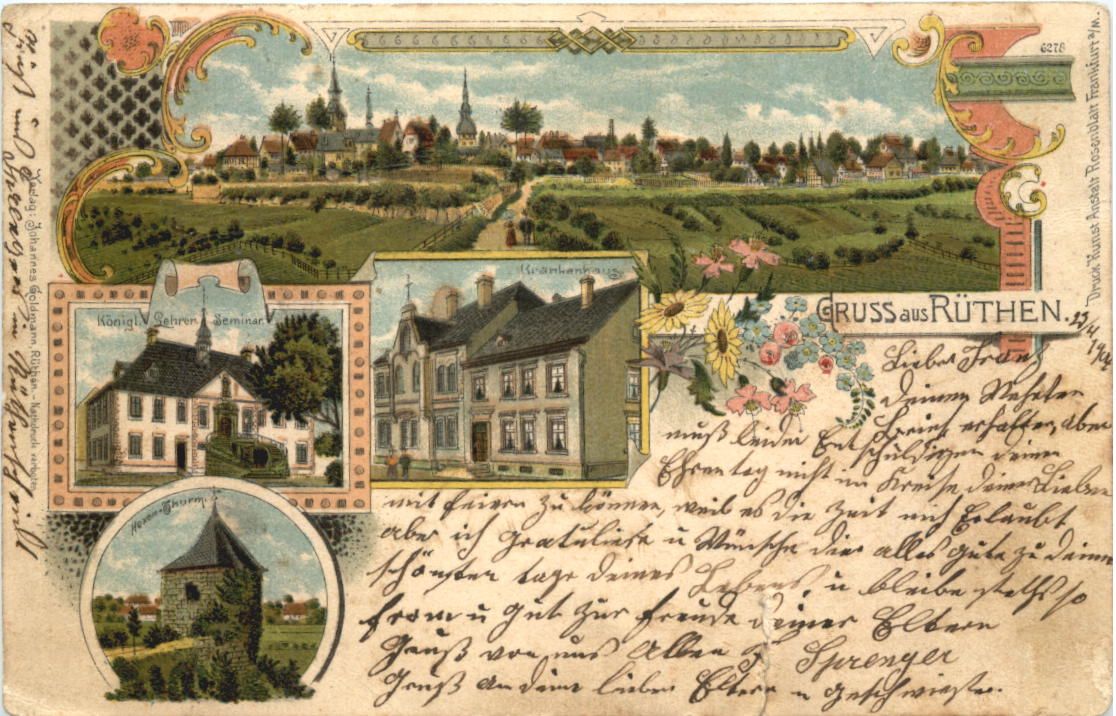 6278
Druck Kunst Anstalt Rosenblatt Frankfurt a/M.
Verlag: Johannes Goldmann, Rüthen. - Nachdruck verboten.
Krankenhaus.
Königl. Lehrer Seminar.
Hexen-Thurm.
GRUSS aus RÜTHEN.
23/4
Lieber Franz
Deinen Wehrten
Brief erhalten, aber
muß leider Entschuldigen deinen
Ehrentag nicht im Kreise deiner Lieben
mit feiern zu können, weil es die Zeit nich Erlaubt
aber ich gratuliese u Wünsche dier alles gute zu deinem
schönsten tage deines Lebens, u bleibe steths so
from u gut zur freude deiner Eltern
Gruß von uns Allen Sprenger
Gruß an deine lieben Eltern u geschwister.